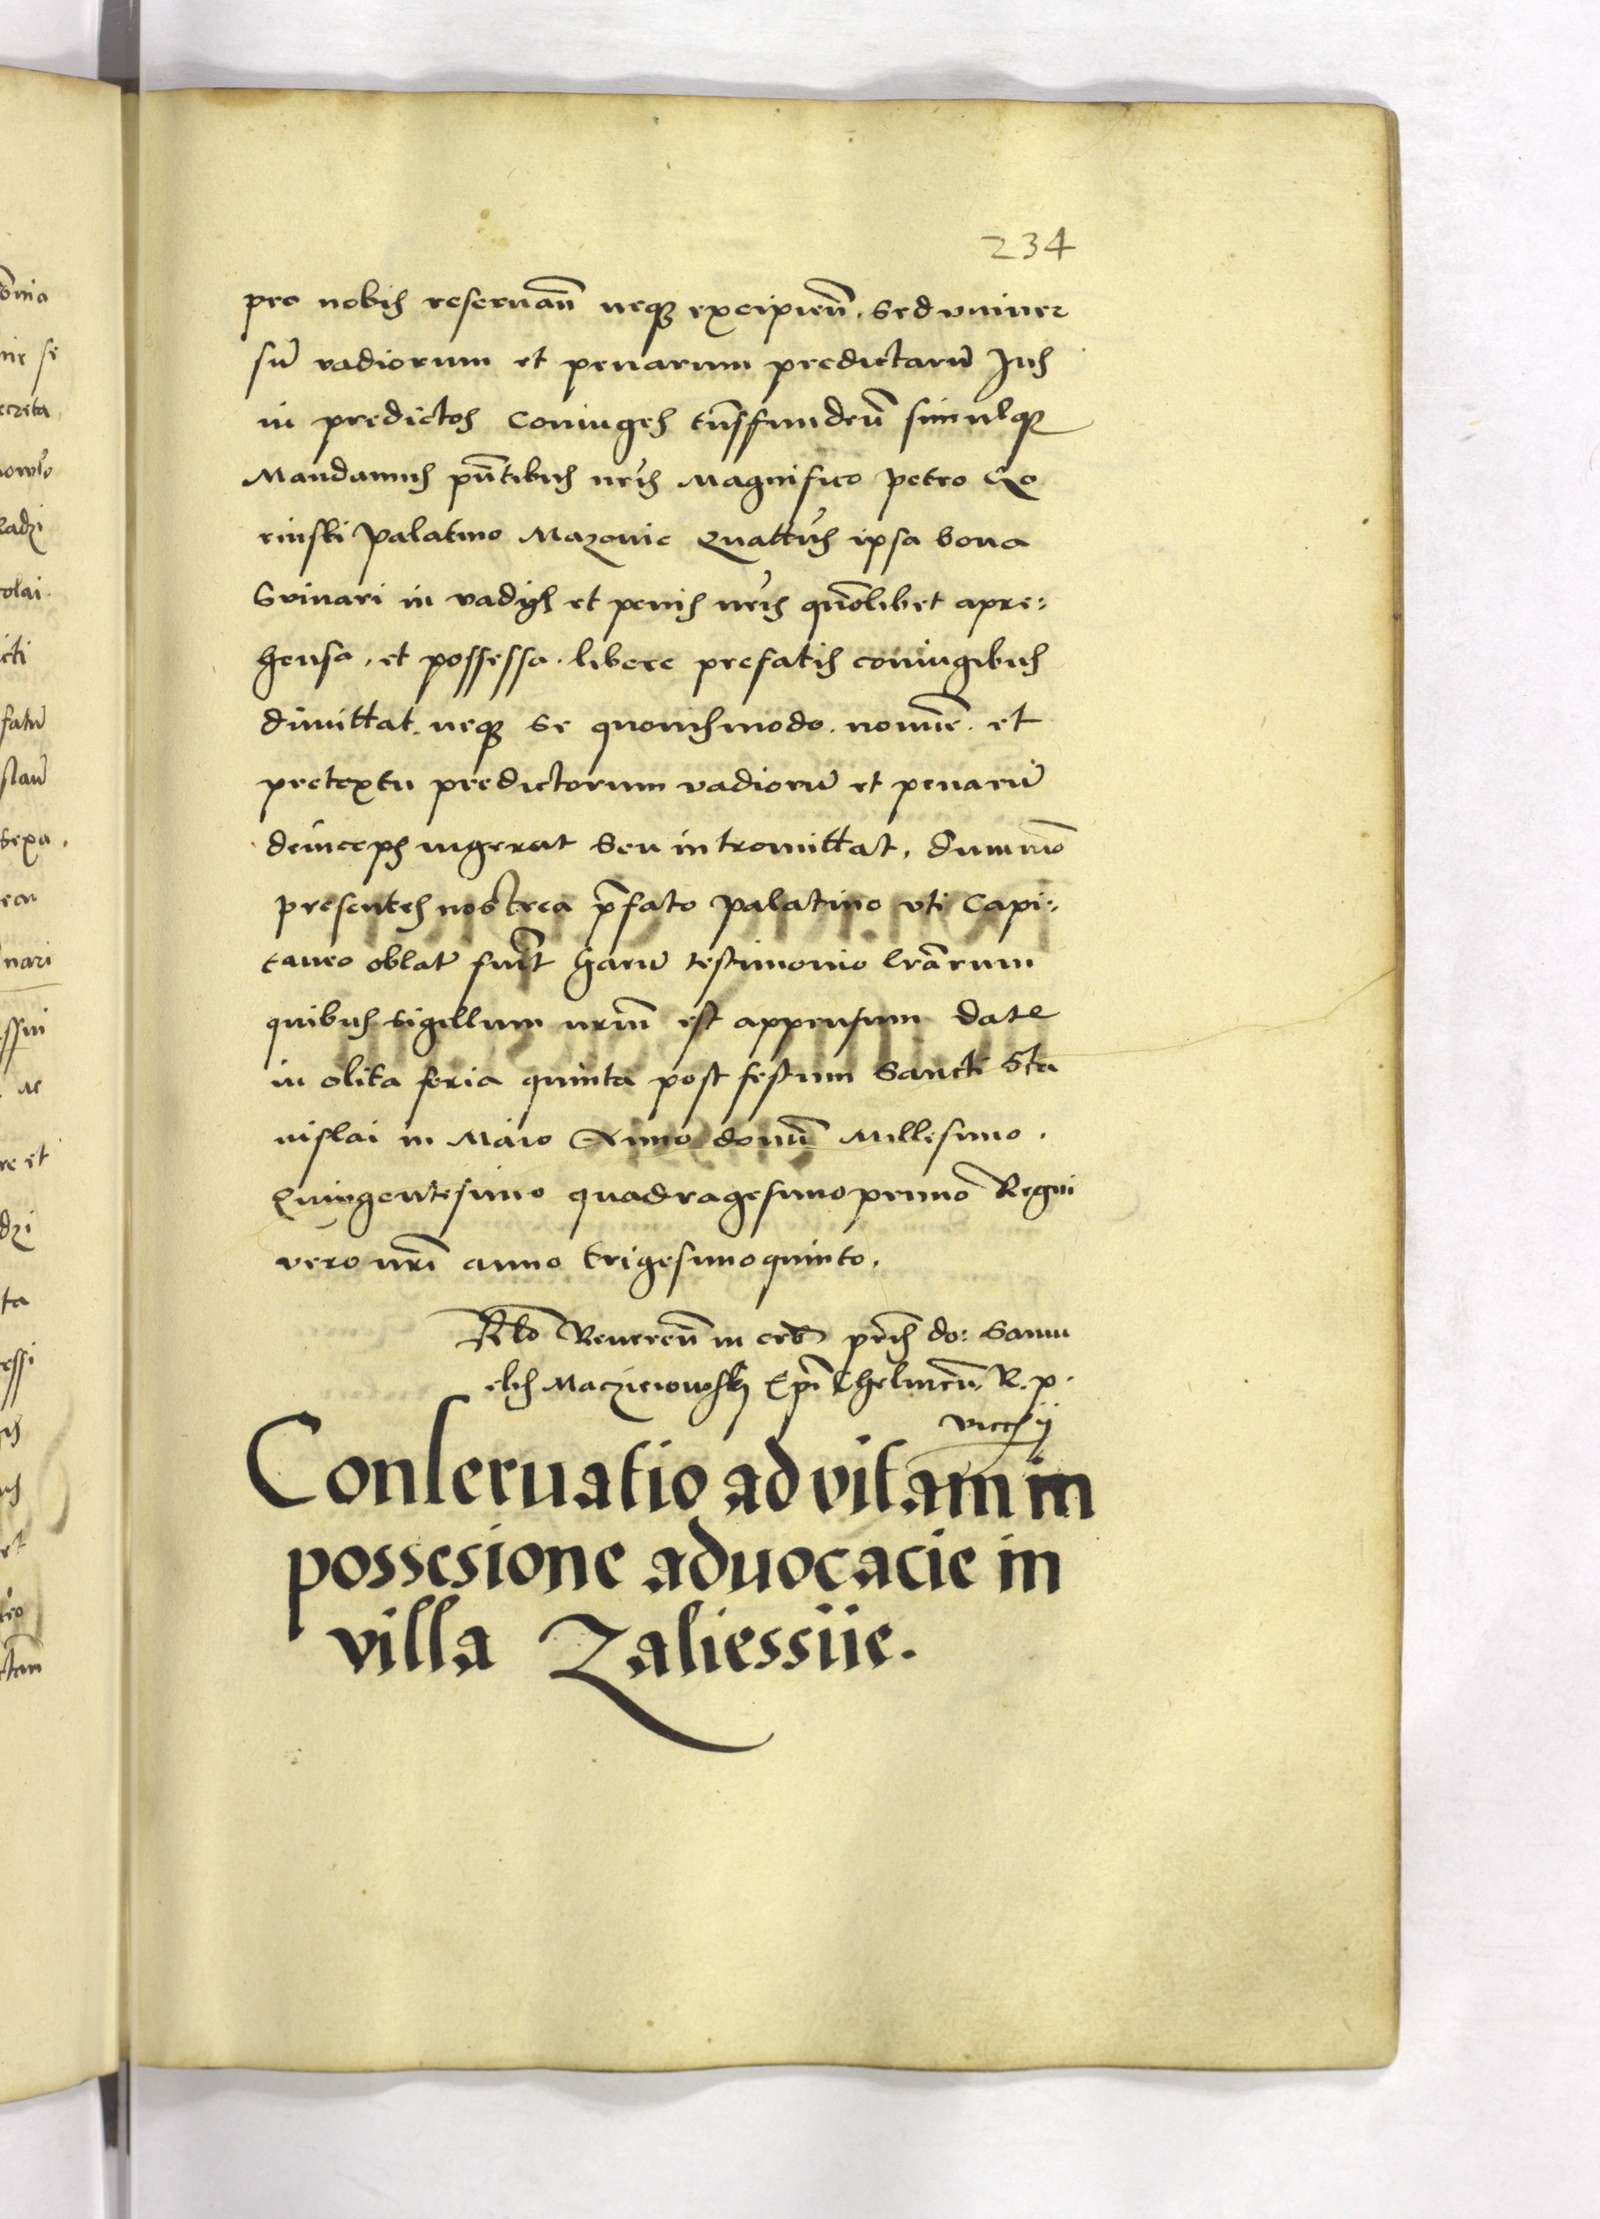 234
pro nobis reseruan̄ neqȝ excipien̄. Sed vniuer
sū vadiorum et penarum predictarū Jus
in predictos Coniuges trn̄sfunden̄ simulqȝ
Mandamus pn̄tibus nr̄is Magnifico Petro Go
rinski Palatino Mazouie Quatt'us ipsa bona
Svinari in vadijs et penis nr̄is quōlibet apre:
hensa. et possessa. libere prefatis coniugibus
dimittat. neqȝ se quouismodo. nomīe. et
pretextu predictorum vadiorū et penarū
deinceps ingerat seu intromittat, dummō
presentes nostrea p̄fato Palatino vti Capi:
taneo oblate fuīt harū testimonio lr̄arum
quibus sigillum nrūm est appensum Date
in olita feria quinta post festum Sancti Sta
nislai in Maio Anno domī Millesimo.
Quingentesimo quadragesimoprimo Regni
vero nrī anno trigesimoquinto.
Rlō Reueren̄ in crō pr̄is do: Samu
elis Maczieiowsky Ep̄i Chelmen̄. R. p.
vicecꝭij
Conseruatio ad vitam in
possesione aduocacie in
villa Zaliessiie.